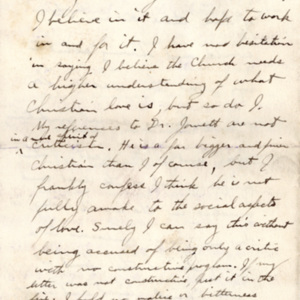 I believe in it and hope to work
in and for it. I have no hesitation
in saying I believe the Church needs
a higher understanding of what
Christian love is, but so do I.
My references to Dr. Jowett are not
in a spirit of
criticism. He is a far bigger and finer
Christian than I of course, but I
frankly confess I think he is not
fully awake to the social aspects
of love. Surely I can say this without
being accused of being only a critic
with no constructive program. If my
letter was not constructive put it in the
fire. I hold no malice or bitterness